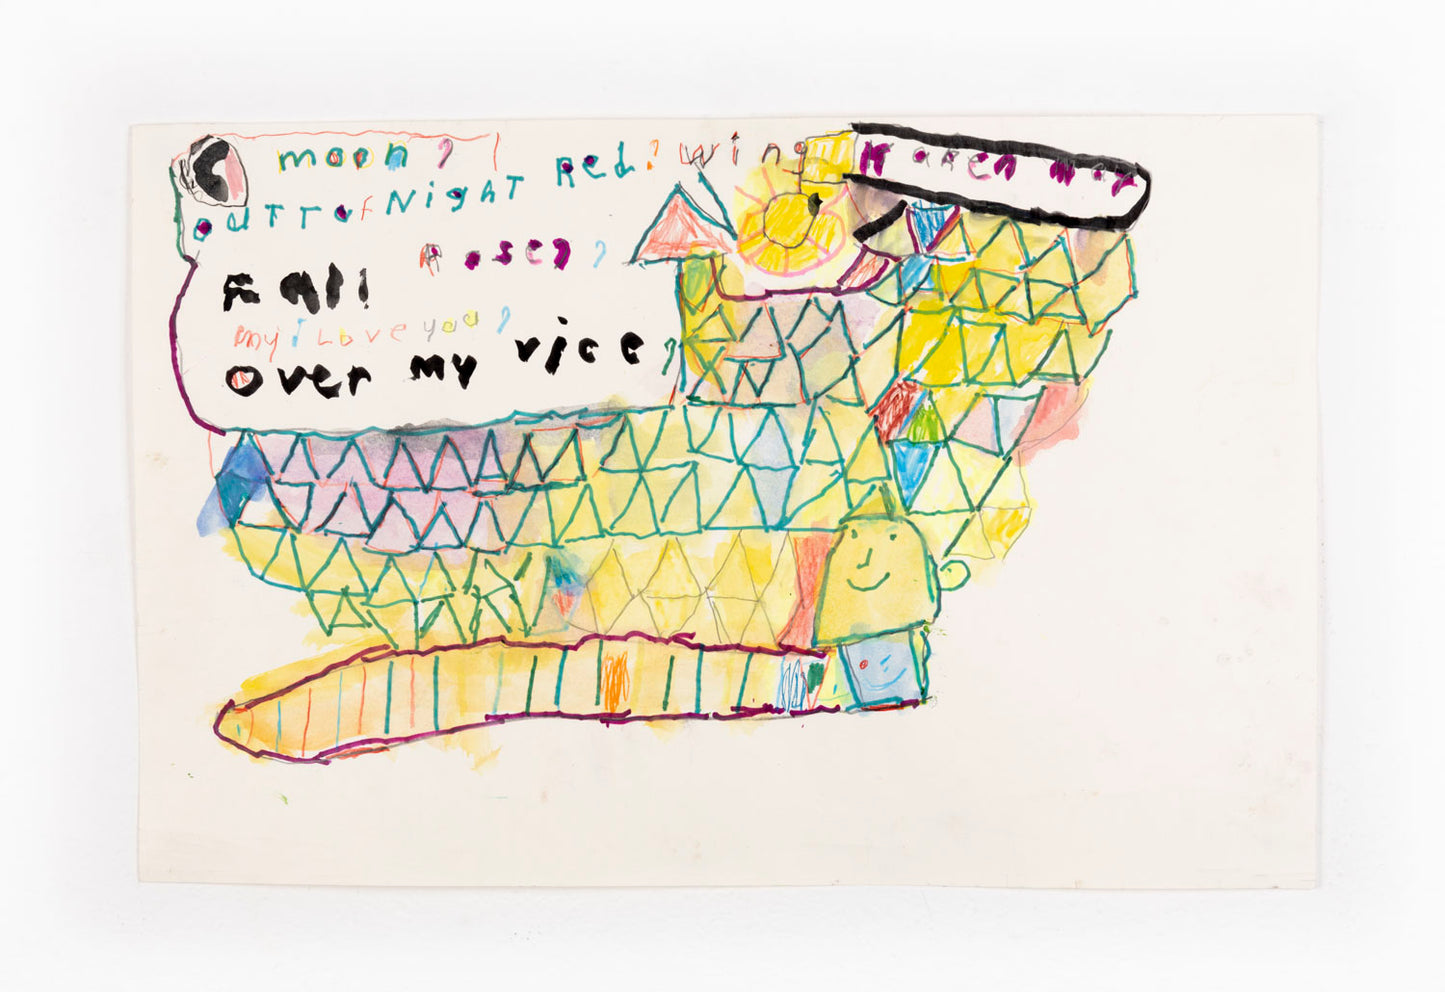 moon, Red, wing
out of Night
Rose,,
Fall
my i Love you,
over my vice,